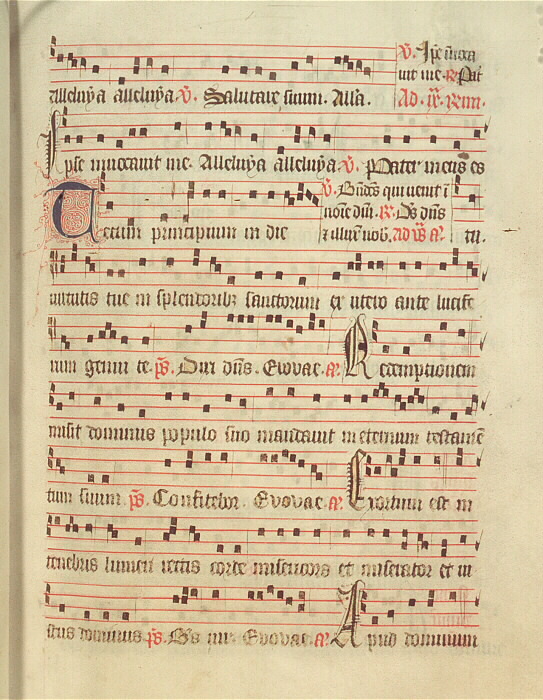 V. Ipse invoca
vit me. R. Pat
alleluya alleluya V. Salutare suum. Alla. Ad
Ipse invocavit me. Alleluya alleluya. V. Pater meus es
V. Bndcs qui venit i
noie dni. R. Ds dns
Tecum principium in die z illuxit nob. Ad tu.
virtutis tue in splendoribz sanctorum ex utero ante lucife
rum genui te. ps. Dixit dns. Evovae. a. Redemptionem
misit dominus populo suo mandavit in eternum testame
tum suum. ps. Confitebor. Evovae. a. Exortum est in
tenebris lumen rectis corde misericors et miserator et iu
stus dominus ps. Bs vir. Evovae. a. Apud dominum